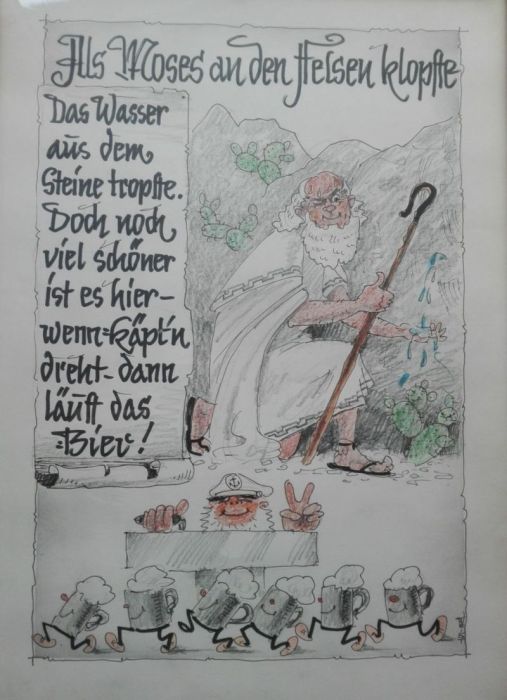 Als Moses an den Felsen klopfte
Das Wasser
aus dem
Steine tropfte.
Doch noch
viel schöner
ist es hier-
wenn=Käpt'n
dreht-dann
läuft das
=Bier!